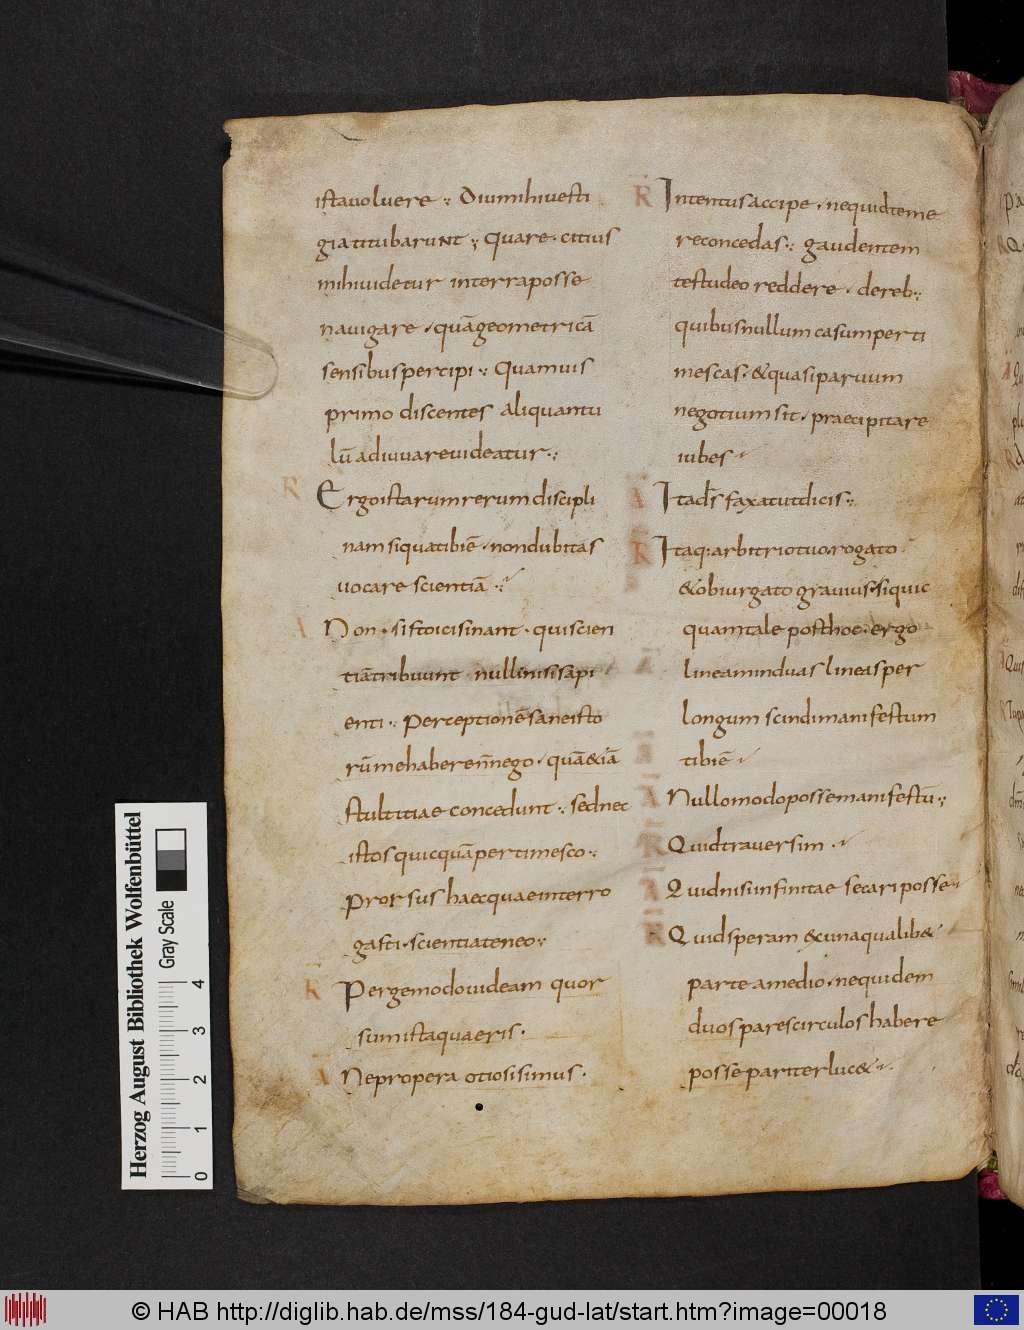 istauoluere . Diumihiuesti
giatitubarunt ; Quare . citius
mihiuidetur interraposse
nauigare . quāgeometricā
sensibuspercipi . Quamuis
primo discentes aliquantu
lū adiuuareuideatur .
Ergoistarumrerumdiscipli
namsiquatibiē . nondubitas
uocare scientiā .
A Non . sistoicisinant . quiscien
tiātribuunt nullinisisapi
enti . Perceptionēsaneisto
rūmehaberen̄nego . quā&iā
stultitiae concedunt . sednec
istosquicquāpertimesco .
Prorsus haecquaeinterro
gasti . scientiateneo .
R Pergemodouideam quor
sumistaquaeris .
A Nepropera otiosisimus .
R Intentusaccipe . nequidteme
reconcedas . gaudentem
testudeo reddere . dereb;
quibusnullumcasumperti
mescas . &quasiparuum
negotiumsit . praecipitare
iubes
A Itad̄s faxatutdicis .
R Itaq:arbitriotuo.rogato
&obiurgato grauius.siquic
quamtale posthoc . ergo
lineaminduas lineasper
longum scindimanifestum
tibiē
A Nullomodopossemanifestū .
R Quidtrauersim .
A Quidnisiinfinitae secari posse
R Quidsperam &cunaqualib&
parte amedio . nequidem
duosparescirculoshabere
posse pariterluc&
Herzog August Bibliothek Wolfenbüttel
Gray Scale
0 1 2 3 4
© HAB http://diglib.hab.de/mss/184-gud-lat/start.htm?image=00018